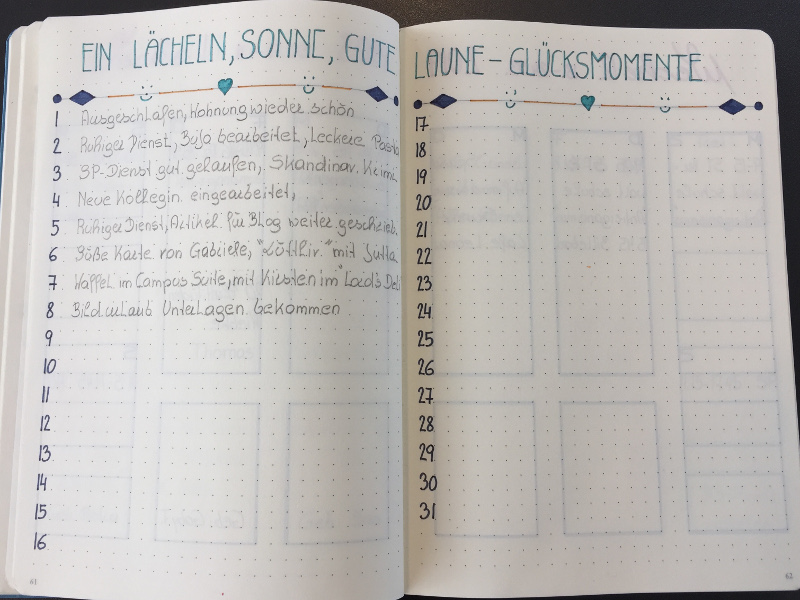 EIN LÄCHELN, SONNE, GUTE LAUNE - GLÜCKSMOMENTE
1 Ausgeschlafen, Wohnung wieder schön
2 Ruhiger Dienst, BuJo bearbeitet, Leckere Pasta
3 SP-Dienst gut gelaufen, Skandinav.
4 Neue Kollegin eingearbeitet,
5 Ruhiger Dienst, Artikel für Blog weiter geschrieb.
6 Süße Karte von Gabriele, "Löffl." mit Jutta
7 Waffel im Campus Suite, mit Kirsten im "Lord's Deli
8 Bildurlaub Unterlagen bekommen
9
10
11
12
13
14
15
16
61
17
18
19
20
21
22
23
24
25
26
27
28
29
30
31
62